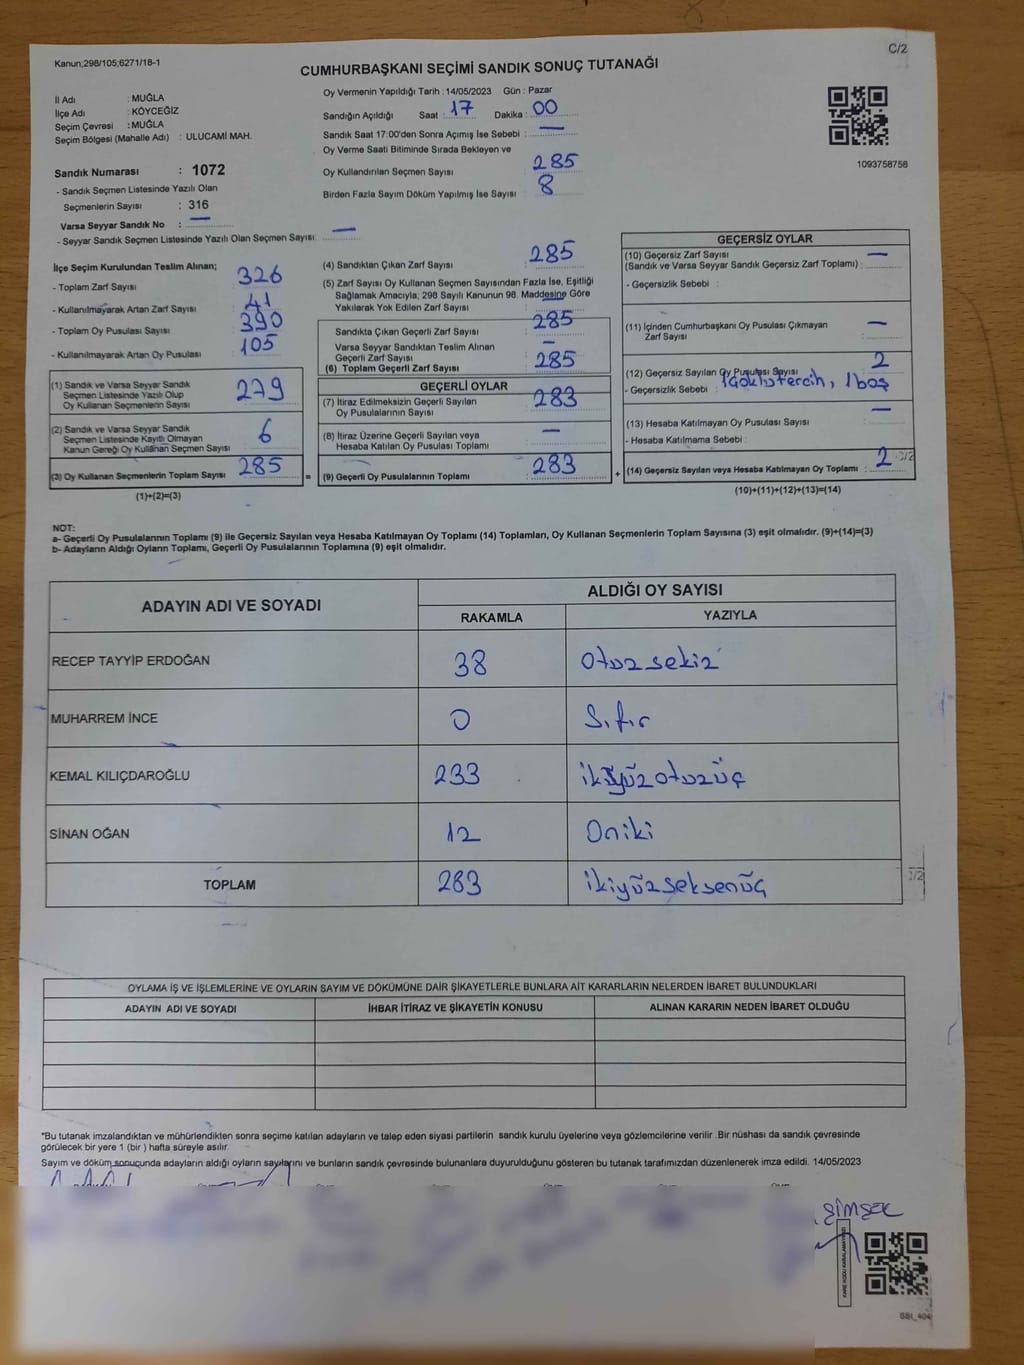 Kanun;298/105;6271/18-1
C/2
CUMHURBAŞKANI SEÇİMİ SANDIK SONUÇ TUTANAĞI
İl Adı : MUĞLA
İlçe Adı : KÖYCEĞİZ
Seçim Çevresi : MUĞLA
Seçim Bölgesi (Mahalle Adı) : ULUCAMİ MAH.
Sandık Numarası : 1072
- Sandık Seçmen Listesinde Yazılı Olan
Seçmenlerin Sayısı : 316
Varsa Seyyar Sandık No : —
- Seyyar Sandık Seçmen Listesinde Yazılı Olan Seçmen Sayısı: —
Oy Vermenin Yapıldığı Tarih : 14/05/2023 Gün : Pazar
Sandığın Açıldığı Saat : 17 Dakika : 00
Sandık Saat 17:00'den Sonra Açımış İse Sebebi : —
Oy Verme Saati Bitiminde Sırada Bekleyen ve
Oy Kullandırılan Seçmen Sayısı : 285
Birden Fazla Sayım Döküm Yapılmış İse Sayısı : 8
1093758758
İlçe Seçim Kurulundan Teslim Alınan;
- Toplam Zarf Sayısı : 326
- Kullanılmayarak Artan Zarf Sayısı : 41
- Toplam Oy Pusulası Sayısı : 390
- Kullanılmayarak Artan Oy Pusulası : 105
(1) Sandık ve Varsa Seyyar Sandık
Seçmen Listesinde Yazılı Olup
Oy Kullanan Seçmenlerin Sayısı : 279
(2) Sandık ve Varsa Seyyar Sandık
Seçmen Listesinde Kayıtlı Olmayan
Kanun Gereği Oy Kullanan Seçmen Sayısı : 6
(3) Oy Kullanan Seçmenlerin Toplam Sayısı : 285
(1)+(2)=(3)
(4) Sandıktan Çıkan Zarf Sayısı : 285
(5) Zarf Sayısı Oy Kullanan Seçmen Sayısından Fazla İse, Eşitliği
Sağlamak Amacıyla, 298 Sayılı Kanunun 98. Maddesine Göre
Yakılarak Yok Edilen Zarf Sayısı : —
Sandıkta Çıkan Geçerli Zarf Sayısı : 285
Varsa Seyyar Sandıktan Teslim Alınan
Geçerli Zarf Sayısı : —
(6) Toplam Geçerli Zarf Sayısı : 285
GEÇERLİ OYLAR
(7) İtiraz Edilmeksizin Geçerli Sayılan
Oy Pusulalarının Sayısı : 283
(8) İtiraz Üzerine Geçerli Sayılan veya
Hesaba Katılan Oy Pusulası Toplamı : —
= (9) Geçerli Oy Pusulalarının Toplamı : 283 +
GEÇERSİZ OYLAR
(10) Geçersiz Zarf Sayısı
(Sandık ve Varsa Seyyar Sandık Geçersiz Zarf Toplamı) : —
- Geçersizlik Sebebi :
(11) İçinden Cumhurbaşkanı Oy Pusulası Çıkmayan
Zarf Sayısı : —
(12) Geçersiz Sayılan Oy Pusulası Sayısı : 2
- Geçersizlik Sebebi : 1 çoklu tercih, 1 boş
(13) Hesaba Katılmayan Oy Pusulası Sayısı : —
- Hesaba Katılmama Sebebi :
(14) Geçersiz Sayılan veya Hesaba Katılmayan Oy Toplamı : 2
(10)+(11)+(12)+(13)=(14)
NOT:
a- Geçerli Oy Pusulalarının Toplamı (9) ile Geçersiz Sayılan veya Hesaba Katılmayan Oy Toplamı (14) Toplamları, Oy Kullanan Seçmenlerin Toplam Sayısına (3) eşit olmalıdır. (9)+(14)=(3)
b- Adayların Aldığı Oyların Toplamı, Geçerli Oy Pusulalarının Toplamına (9) eşit olmalıdır.
ADAYIN ADI VE SOYADI
ALDIĞI OY SAYISI
RAKAMLA YAZIYLA
RECEP TAYYİP ERDOĞAN 38 Otuz sekiz
MUHARREM İNCE 0 Sıfır
KEMAL KILIÇDAROĞLU 233 ikiyüz otuzüç
SİNAN OĞAN 12 Oniki
TOPLAM 283 ikiyüz seksenüç
OYLAMA İŞ VE İŞLEMLERİNE VE OYLARIN SAYIM VE DÖKÜMÜNE DAİR ŞİKAYETLERLE BUNLARA AİT KARARLARIN NELERDEN İBARET BULUNDUKLARI
ADAYIN ADI VE SOYADI İHBAR İTİRAZ VE ŞİKAYETİN KONUSU ALINAN KARARIN NEDEN İBARET OLDUĞU
*Bu tutanak imzalandıktan ve mühürlendikten sonra seçime katılan adayların ve talep eden siyasi partilerin sandık kurulu üyelerine veya gözlemcilerine verilir .Bir nüshası da sandık çevresinde
görülecek bir yere 1 (bir ) hafta süreyle asılır.
Sayım ve döküm sonucunda adayların aldığı oyların sayılarını ve bunların sandık çevresinde bulunanlara duyurulduğunu gösteren bu tutanak tarafımızdan düzenlenerek imza edildi. 14/05/2023
ŞİMŞEK
KARE KODU KARALAMAYINIZ!